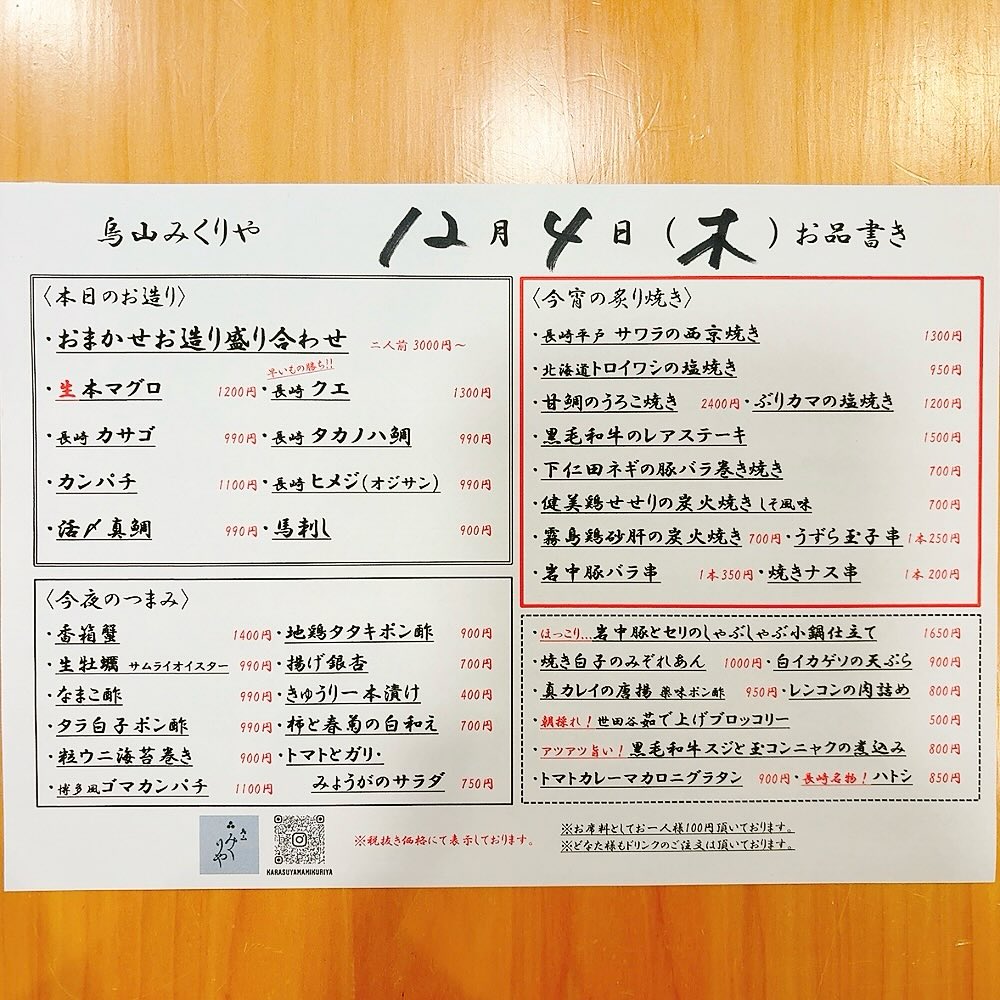 烏山みくりや 12月4日(木)お品書き
〈本日のお造り〉
・おまかせお造り盛り合わせ 二人前 3000円～
早いもの勝ち!!
・生本マグロ 1200円・長崎 クエ 1300円
・長崎 カサゴ 990円・長崎 タカノハ鯛 990円
・カンパチ 1100円・長崎 ヒメジ(オジサン) 990円
・活〆真鯛 990円・馬刺し 900円
〈今夜のつまみ〉
・香箱蟹 1400円・地鶏タタキポン酢 900円
・生牡蠣 サムライオイスター 990円・揚げ銀杏 700円
・なまこ酢 990円・きゅうり一本漬け 400円
・タラ白子ポン酢 990円・柿と春菊の白和え 700円
・粒ウニ海苔巻き 900円・トマトとガリ・
・博多風ゴマカンパチ 1100円 みょうがのサラダ 750円
〈今宵の炙り焼き〉
・長崎平戸 サワラの西京焼き 1300円
・北海道トロイワシの塩焼き 950円
・甘鯛のうろこ焼き 2400円・ぶりカマの塩焼き 1200円
・黒毛和牛のレアステーキ 1500円
・下仁田ネギの豚バラ巻き焼き 700円
・健美鶏せせりの炭火焼き しそ風味 700円
・霧島鶏砂肝の炭火焼き 700円・うずら玉子串 1本250円
・岩中豚バラ串 1本350円・焼きナス串 1本200円
・ほっこり…岩中豚とセリのしゃぶしゃぶ小鍋仕立て 1650円
・焼き白子のみぞれあん 1000円・白イカゲソの天ぷら 900円
・真カレイの唐揚 薬味ポン酢 950円・レンコンの肉詰め 800円
・朝採れ!世田谷茹で上げブロッコリー 500円
・アツアツ旨い!黒毛和牛スジと玉コンニャクの煮込み 800円
・トマトカレーマカロニグラタン 900円・長崎名物!ハトシ 850円
みくりや
KARASUYAMAMIKURIYA
※税抜き価格にて表示しております。
※お席料としてお一人様100円頂いております。
※どなた様もドリンクのご注文は頂いております。